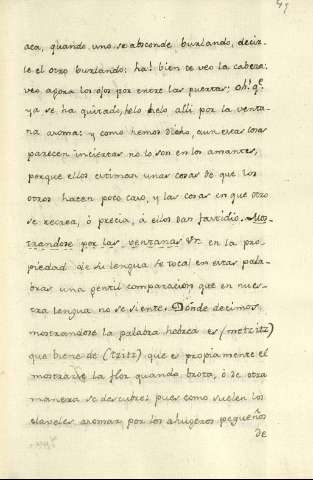 47
aca, quando uno se absconde burlando, decir-
le el otro burlando: ha! bien te veo la cabeza:
veo agora los ojos por entre las puertas; oh! q.e
ya se ha quitado, helo helo alli por la venta-
na asoma: y como hemos dicho, aun estas cosas
parecen inciertas no lo son en los amantes,
porque ellos estiman unas cosas de que los
otros hacen poco caso, y las cosas en que otro
se recrea, ó precia, á ellos dan fastidio. Mos-
trandose por las ventanas &c. en la pro-
piedad de su lengua se toca en estas pala-
bras una gentil comparacion que en nues-
tra lengua no se siente. Donde decimos
mostrandose la palabra hebrea es (metzitz)
que biene de (tzitz) que es propiamente el
mostrarse la flor quando brota, ó de otra
manera se descubre; pues como suelen los
claveles asomar por los ahugeros pequeños
de